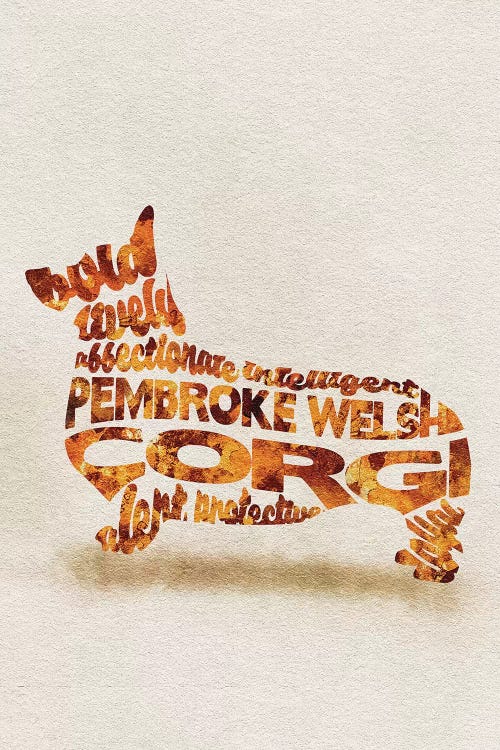 bold
lively
affectionate intelligent
PEMBROKE WELSH
CORGI
alert protective
loyal